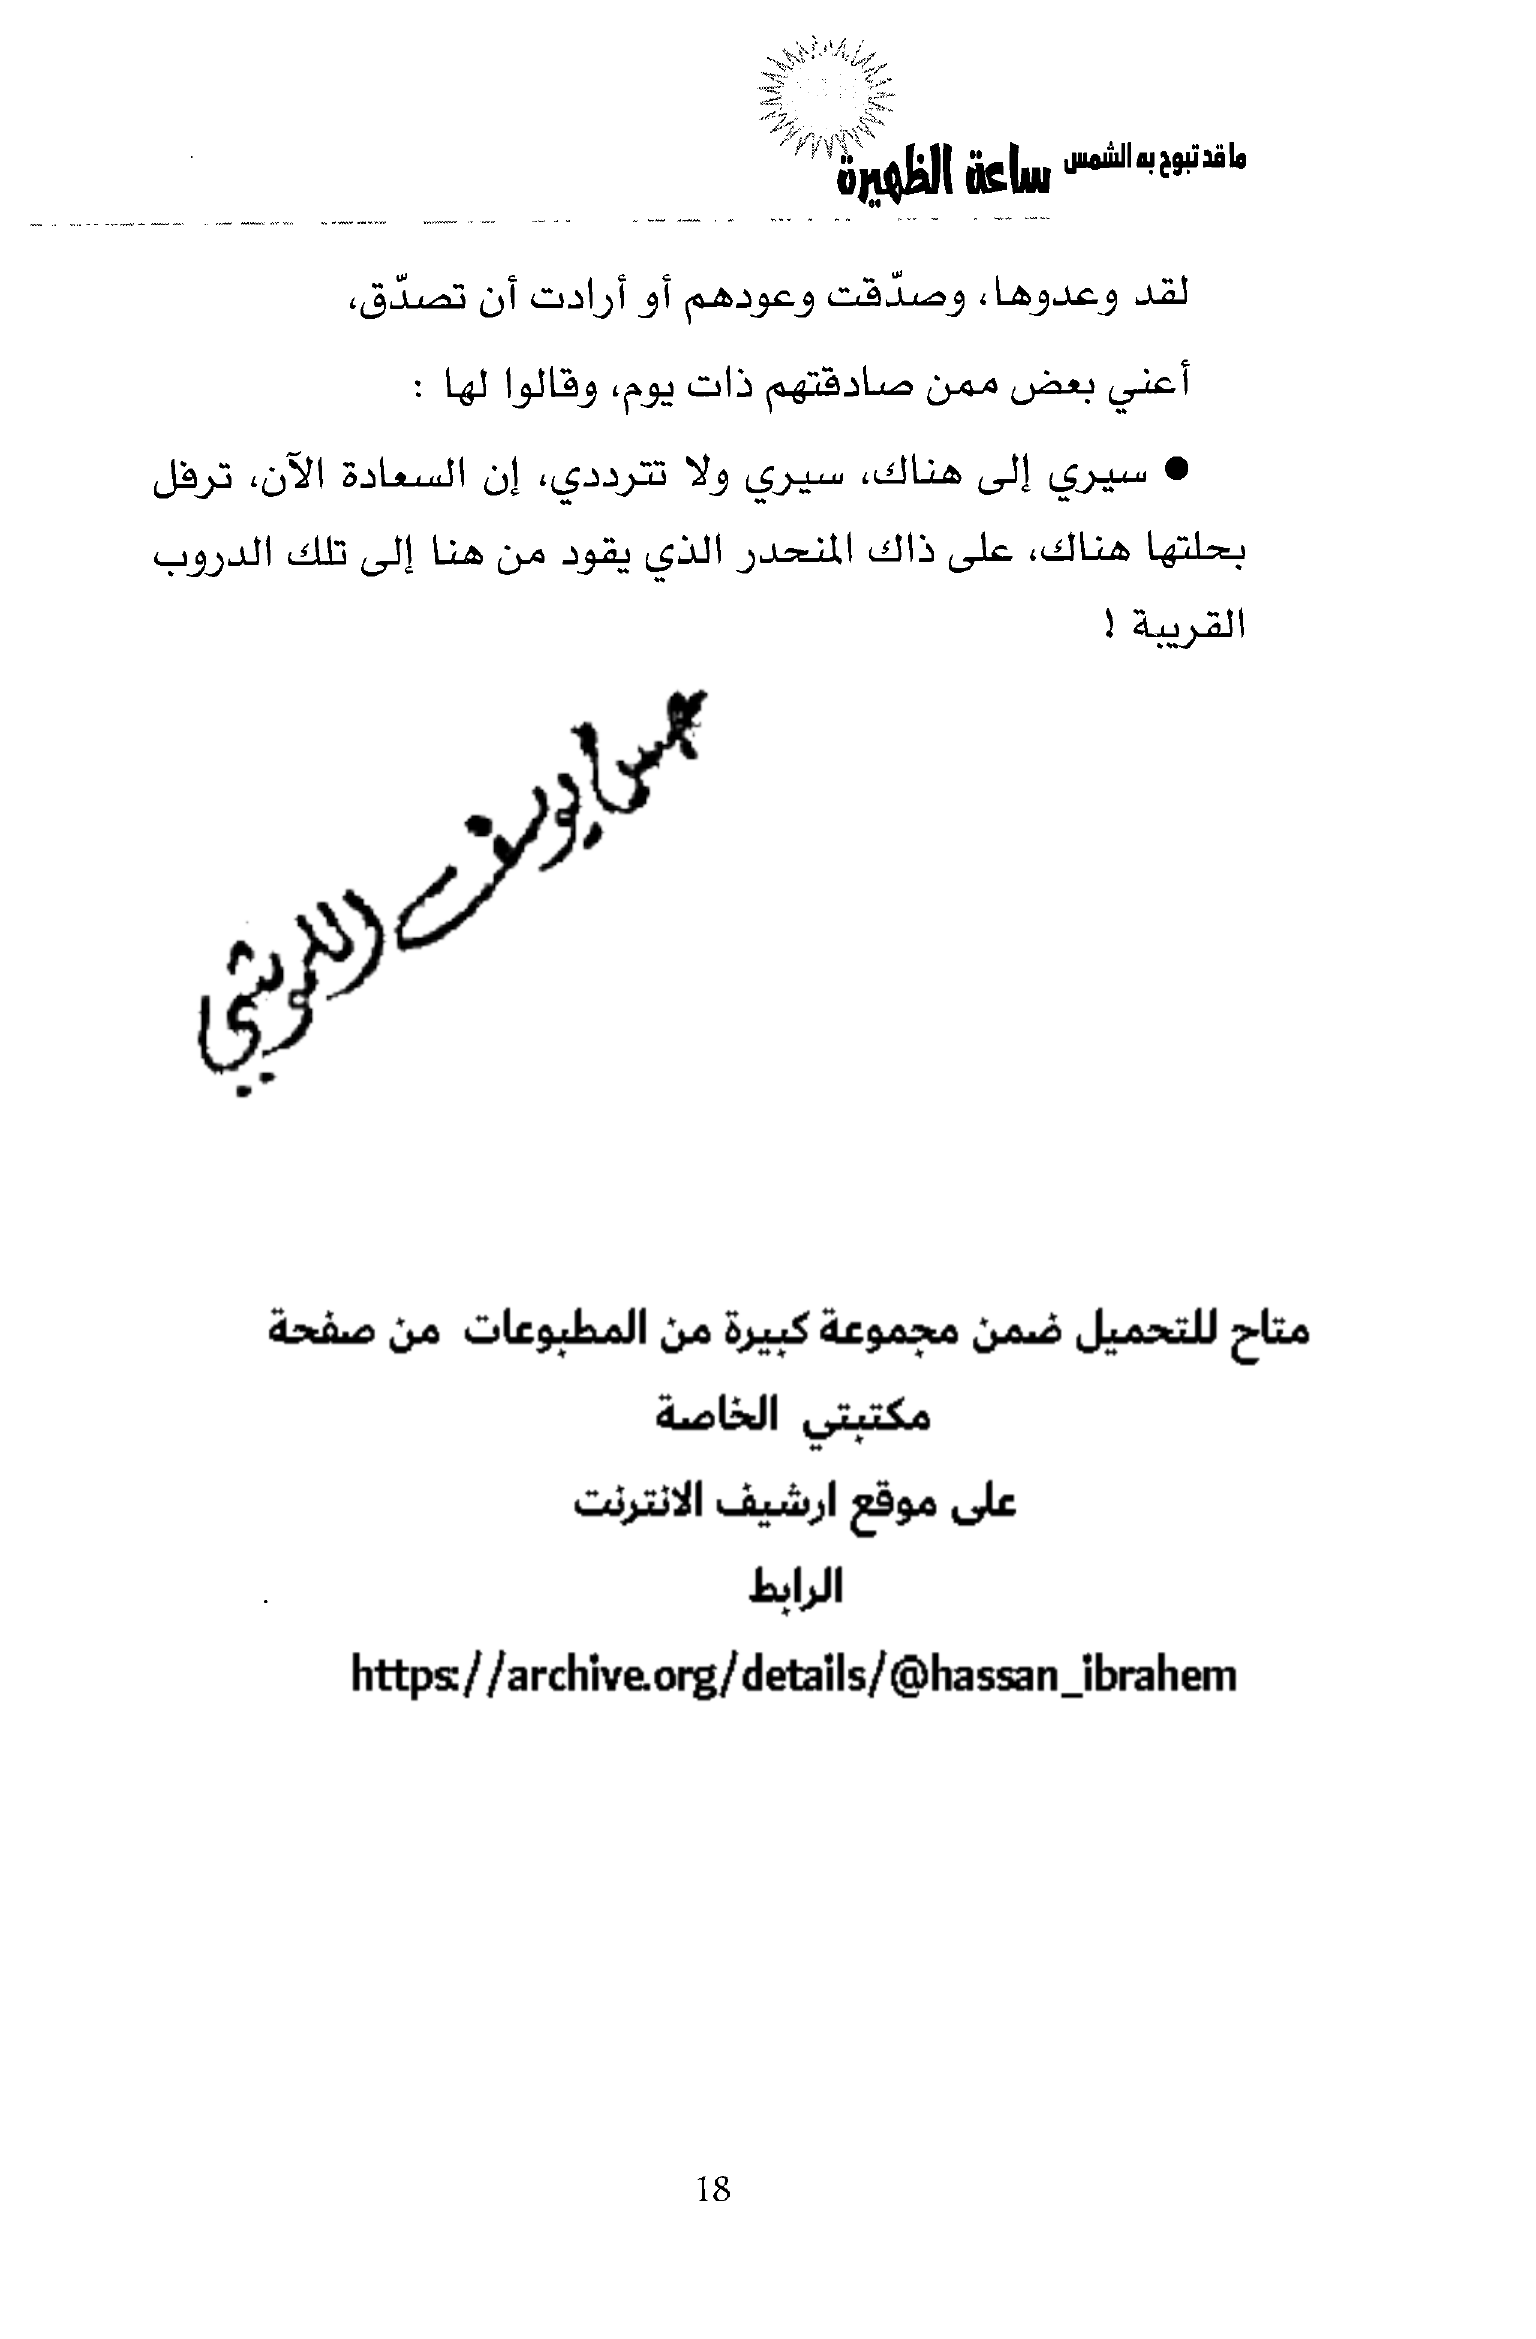 ما قد تبوح به الشمس ساعة الظهيرة
لقد وعدوها، وصدّقت وعودهم أو أرادت أن تصدّق،
أعني بعض ممن صادقتهم ذات يوم، وقالوا لها :
● سيري إلى هناك، سيري ولا تترددي، إن السعادة الآن، ترفل
بحلتها هناك، على ذاك المنحدر الذي يقود من هنا إلى تلك الدروب
القريبة !
يوسف
متاح للتحميل ضمن مجموعة كبيرة من المطبوعات من صفحة
مكتبتي الخاصة
على موقع ارشيف الانترنت
الرابط
https://archive.org/details/@hassan_ibrahem
18